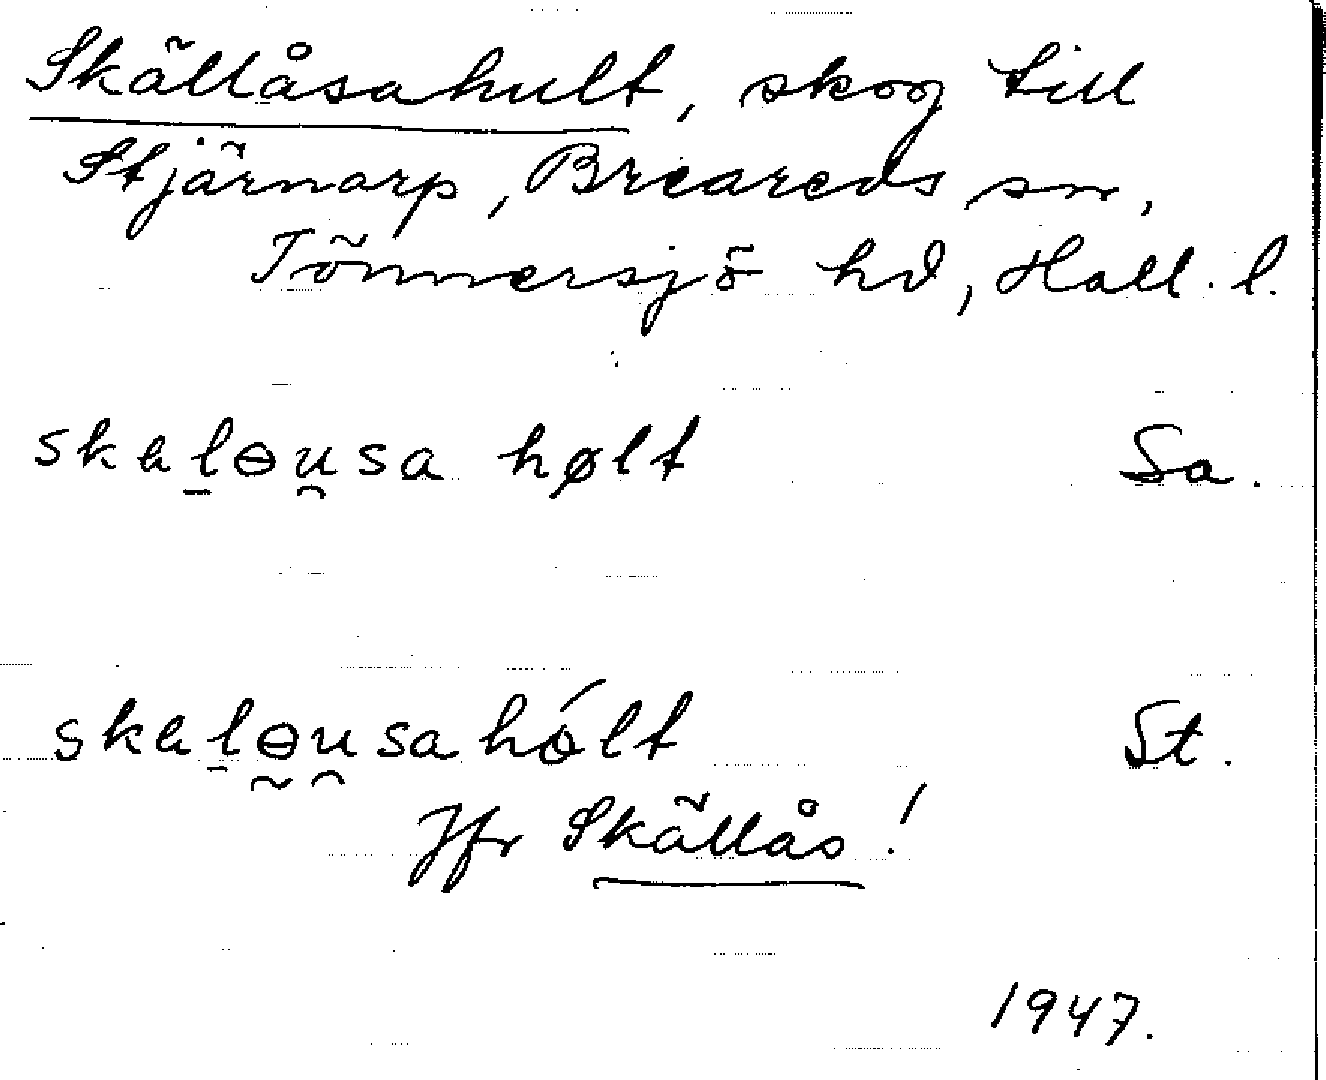 Skällåsahult, skog till
Stjärnarp, Breareds sn,
Tönnersjö hd, Hall. l.
skal̠ɵu̯sa hølt Sa.
skal̠ɵ̰u̯sahólt St.
Jfr Skällås!
1947.